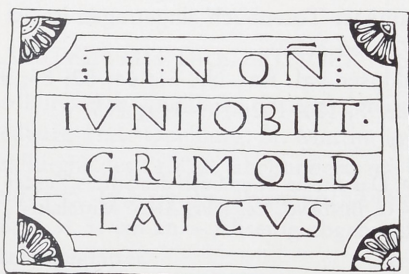 :III:N OÑ:
IVNIIOBIIT·
GRIMOLD
LAICVS